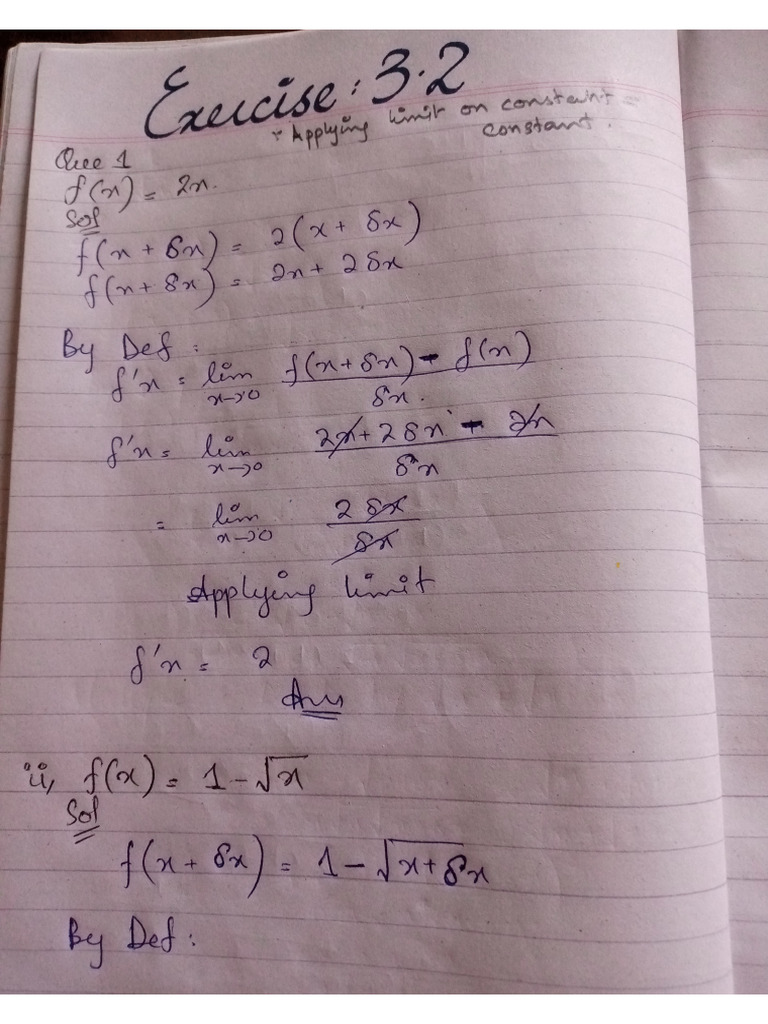 Exercise: 3.2
∵ Applying limit on constant =
constant.
Que 1
f(x) = 2x.
Sol
f(x + δx) = 2(x + δx)
f(x + δx) = 2x + 2δx
By Def :
f'x = lim x→0 f(x+δx) - f(x) / δx.
f'x = lim x→0 2x + 2δx - 2x / δx
= lim x→0 2δx / δx
Applying limit
f'x = 2
Ans
ii, f(x) = 1 - √x
Sol
f(x + δx) = 1 - √x+δx
By Def :